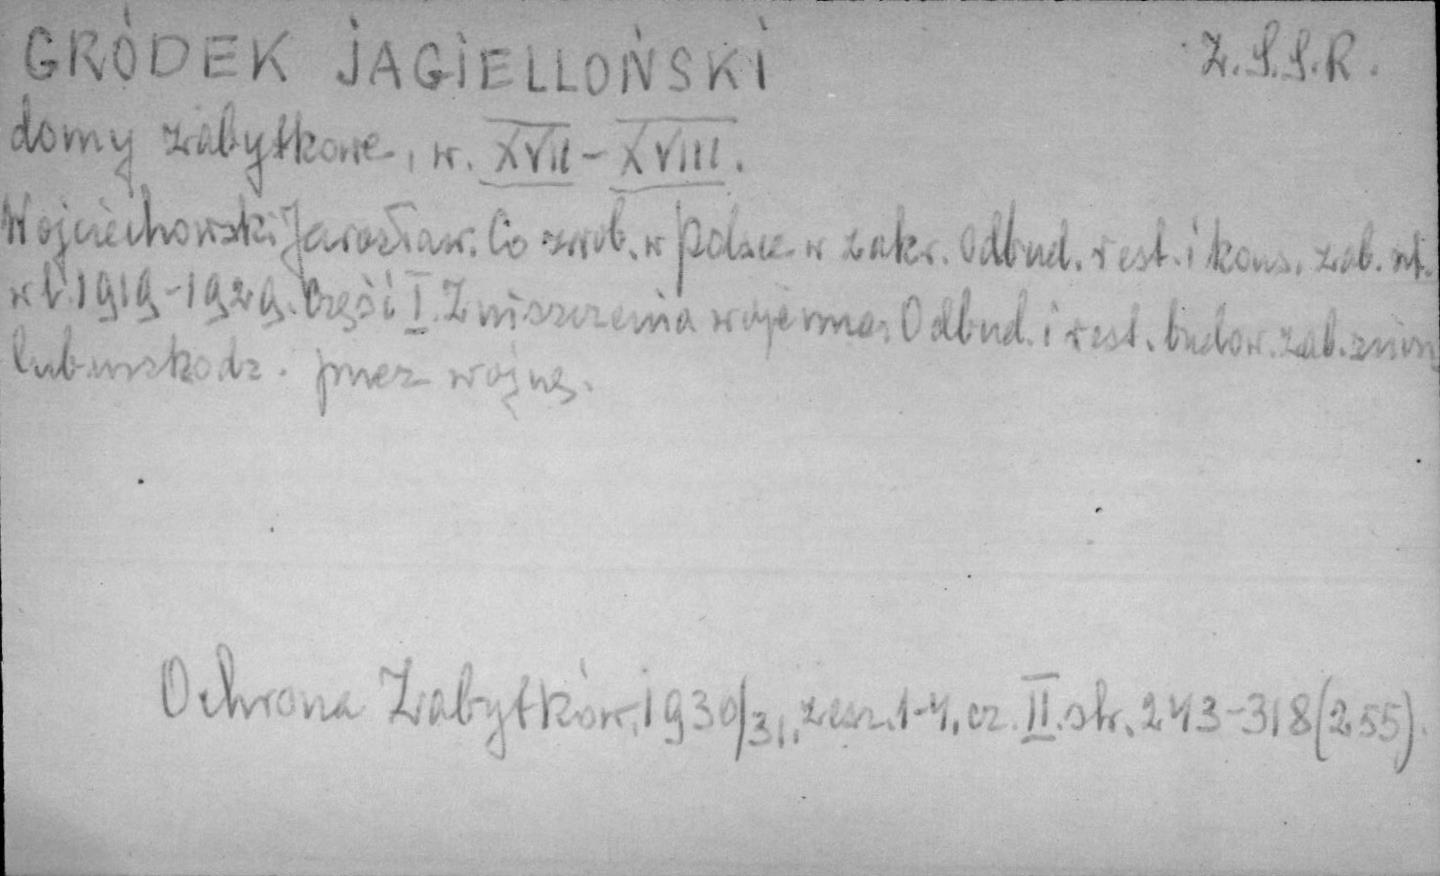 GRÓDEK JAGIELLOŃSKI Z.S.S.R.
domy zabytkowe, w. XVII-XVIII.
Wojciechowski Jarosław. Co zrob. w Polsce w zakr. Odbud. rest. i kons. zab. szt.
w l. 1919-1929. Część I. Zniszczenia wojenne. Odbud. i rest. budow. zab. znisz
lub uszkodz. przez wojnę.
Ochrona Zabytków, 1930/31, zesz. 1-4, cz. II. str. 243-318 (255).